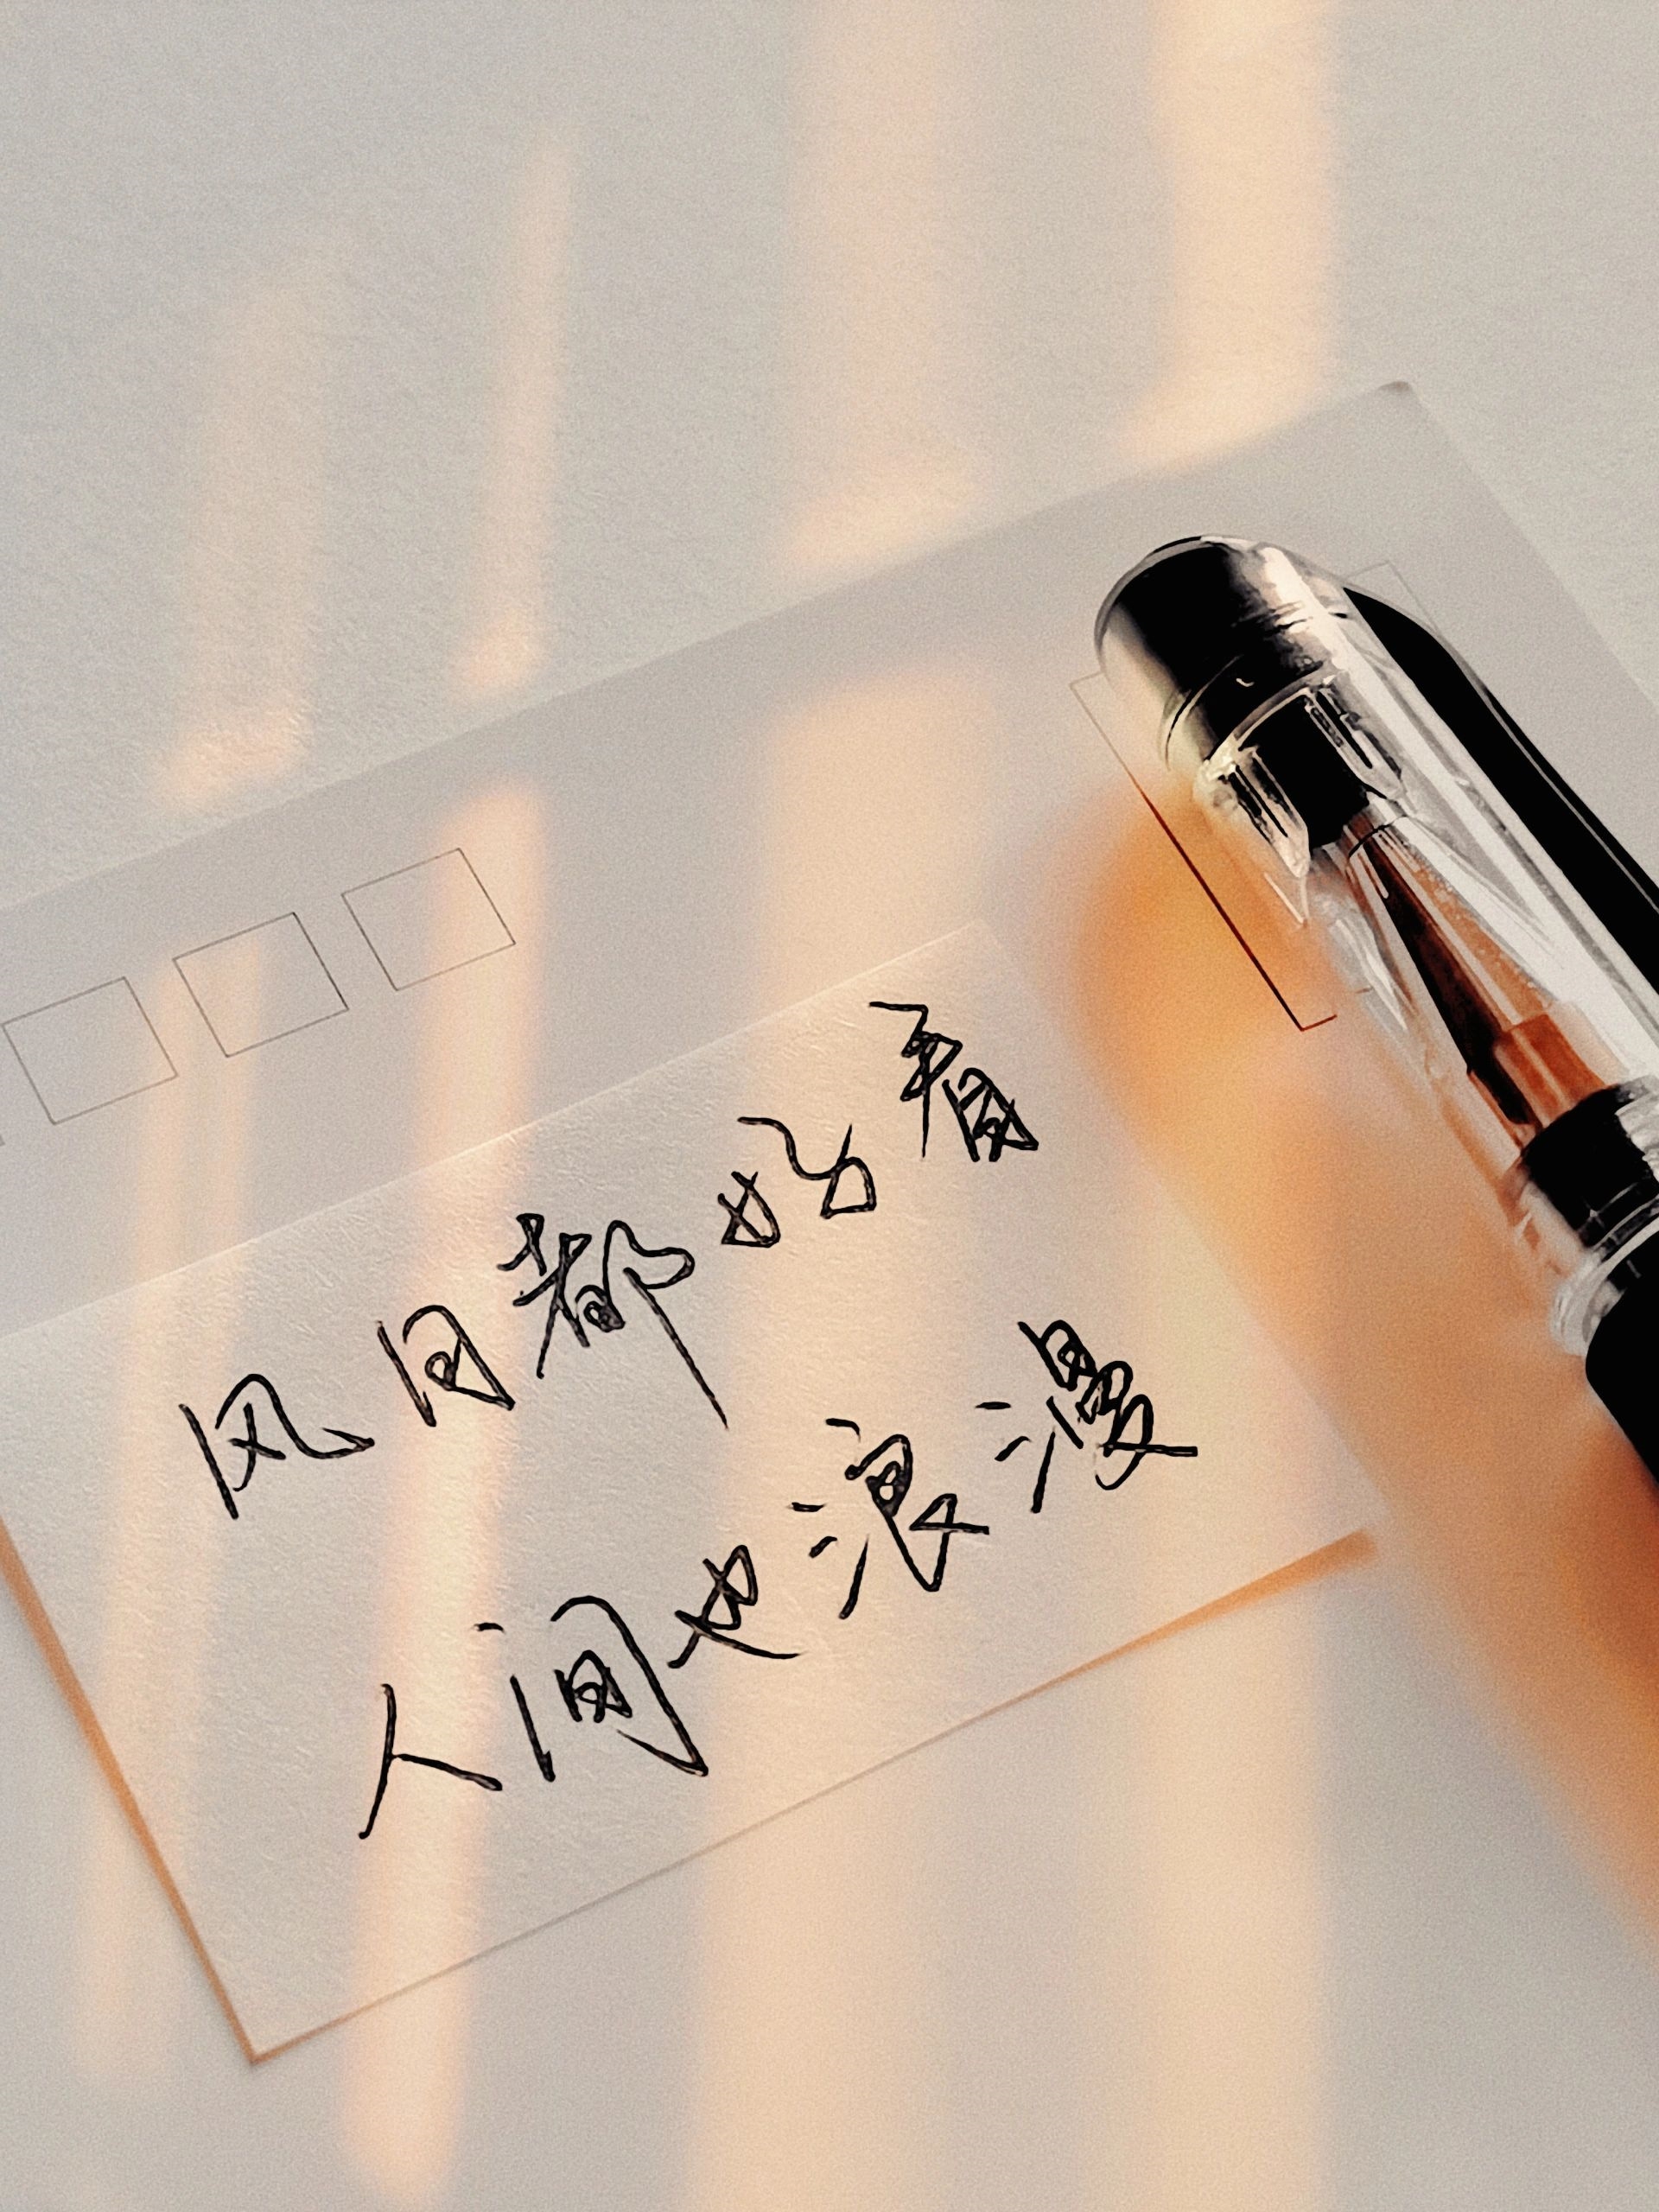 风日都好看
人间也浪漫